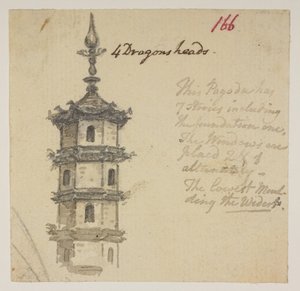 166
4 Dragons heads.
This Pagoda has
7 stories including
the foundation one,
The Windows are
placed
alternately.
The lowest Moul-
ding the Widest.